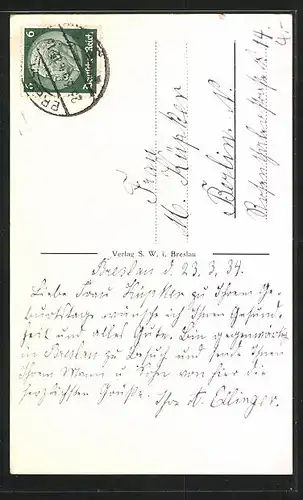 6
Deutsches Reich
BRESLAU
4,-
Frau
M. Küpker
Berlin N.
14.
Verlag S. W. i. Breslau
Breslau d. 23.3.34.
Liebe Frau Küpker zu Ihrem Ge-
burtstage wünsche ich Ihnen Gesund-
heit und alles Gute. Bin gegenwärtig
in Breslau zu Besuch und sende Ihnen
Ihrem Mann u. Sohn von hier die
herzlichsten Grüße. Ihre A. Ellinger.